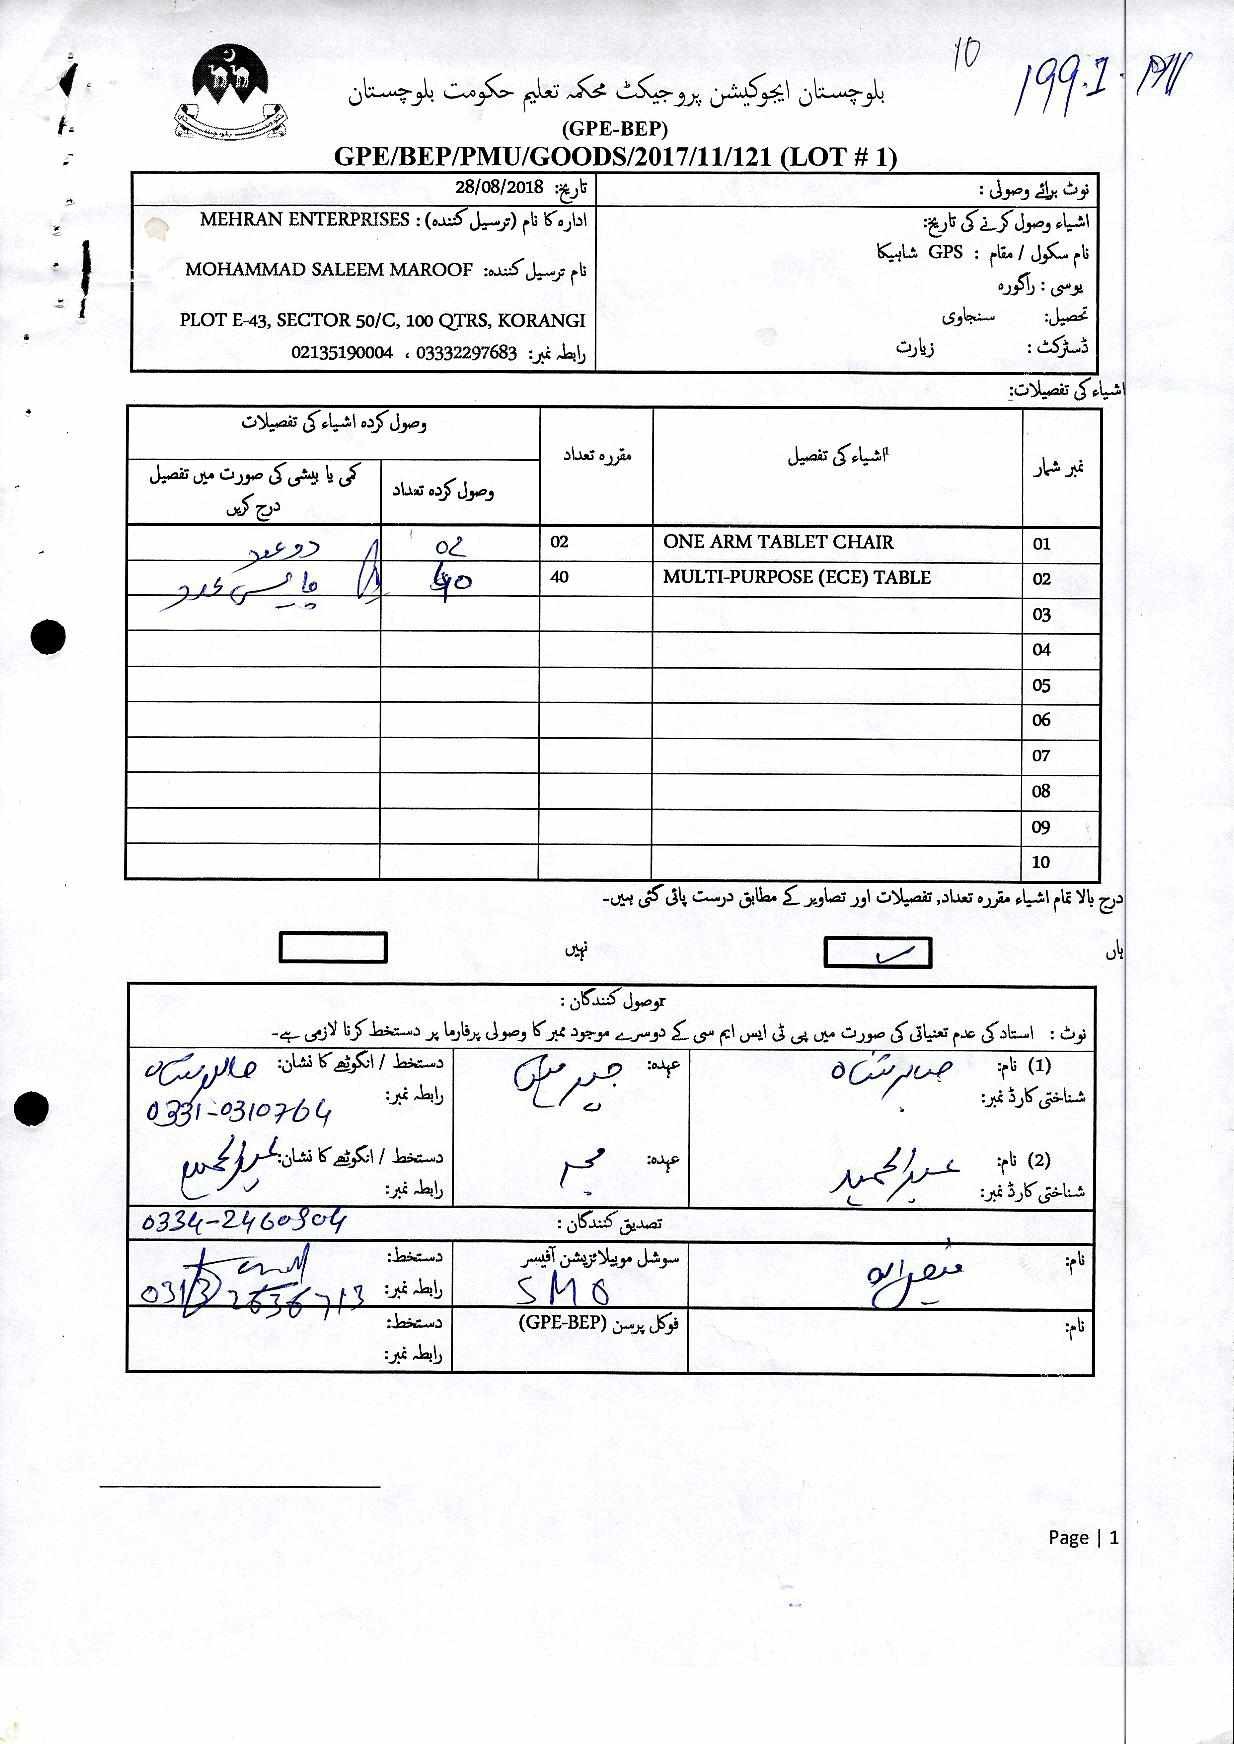 10
199.1
بلوچستان ایجوکیشن پروجیکٹ محکمہ تعلیم حکومت بلوچستان
(GPE-BEP)
GPE/BEP/PMU/GOODS/2017/11/121 (LOT # 1)
نوٹ برائے وصولی :
تاریخ: 28/08/2018
اشیاء وصول کرنے کی تاریخ:
نام سکول / مقام : GPS شاہیکا
یوسی : راگورہ
تحصیل: سنجاوی
ڈسٹرکٹ : زیارت
ادارہ کا نام (ترسیل کنندہ) : MEHRAN ENTERPRISES
نام ترسیل کنندہ: MOHAMMAD SALEEM MAROOF
PLOT E-43, SECTOR 50/C, 100 QTRS, KORANGI
رابطہ نمبر: 03332297683 ، 02135190004
اشیاء کی تفصیلات:
نمبر شمار اشیاء کی تفصیل مقررہ تعداد وصول کردہ اشیاء کی تفصیلات
وصول کردہ تعداد کمی یا بیشی کی صورت میں تفصیل درج کریں
01 ONE ARM TABLET CHAIR 02 02 دو عدد
02 MULTI-PURPOSE (ECE) TABLE 40 40 چالیس عدد
03
04
05
06
07
08
09
10
درج بالا تمام اشیاء مقررہ تعداد, تفصیلات اور تصاویر کے مطابق درست پائی گئی ہیں۔
ہاں ✓ نہیں
وصول کنندگان :
نوٹ : استاد کی عدم تعیناتی کی صورت میں پی ٹی ایس ایم سی کے دوسرے موجود ممبر کا وصولی پرفارما پر دستخط کرنا لازمی ہے۔
(1) نام: صابر شاہ عہدہ: چیئرمین دستخط / انگوٹھے کا نشان: صابر شاہ
شناختی کارڈ نمبر: رابطہ نمبر: 0331-0310764
(2) نام: عبدالحمید عہدہ: دستخط / انگوٹھے کا نشان: عبدالحمید
شناختی کارڈ نمبر: رابطہ نمبر:
تصدیق کنندگان : 0334-2460904
نام: سوشل موبیلائزیشن آفیسر دستخط:
SMO رابطہ نمبر: 0313 2636713
نام: فوکل پرسن (GPE-BEP) دستخط:
رابطہ نمبر:
Page | 1